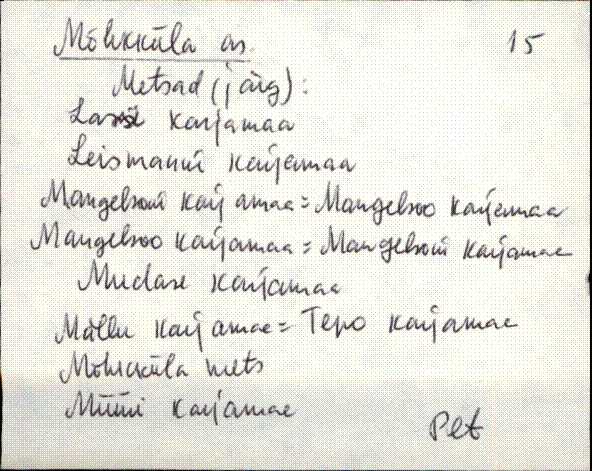 Mõhkküla as. 15
Metsad (järg):
karjamaa
Leismanni karjamaa
Mangelsoni karjamaa = Mangelsoo karjamaa
Mangelsoo karjamaa = Mangelsoni karjamaa
Mudase karjamaa
Mällu karjamaa = Tepo karjamaa
Mõhkküla mets
Müüri karjamaa
Pet